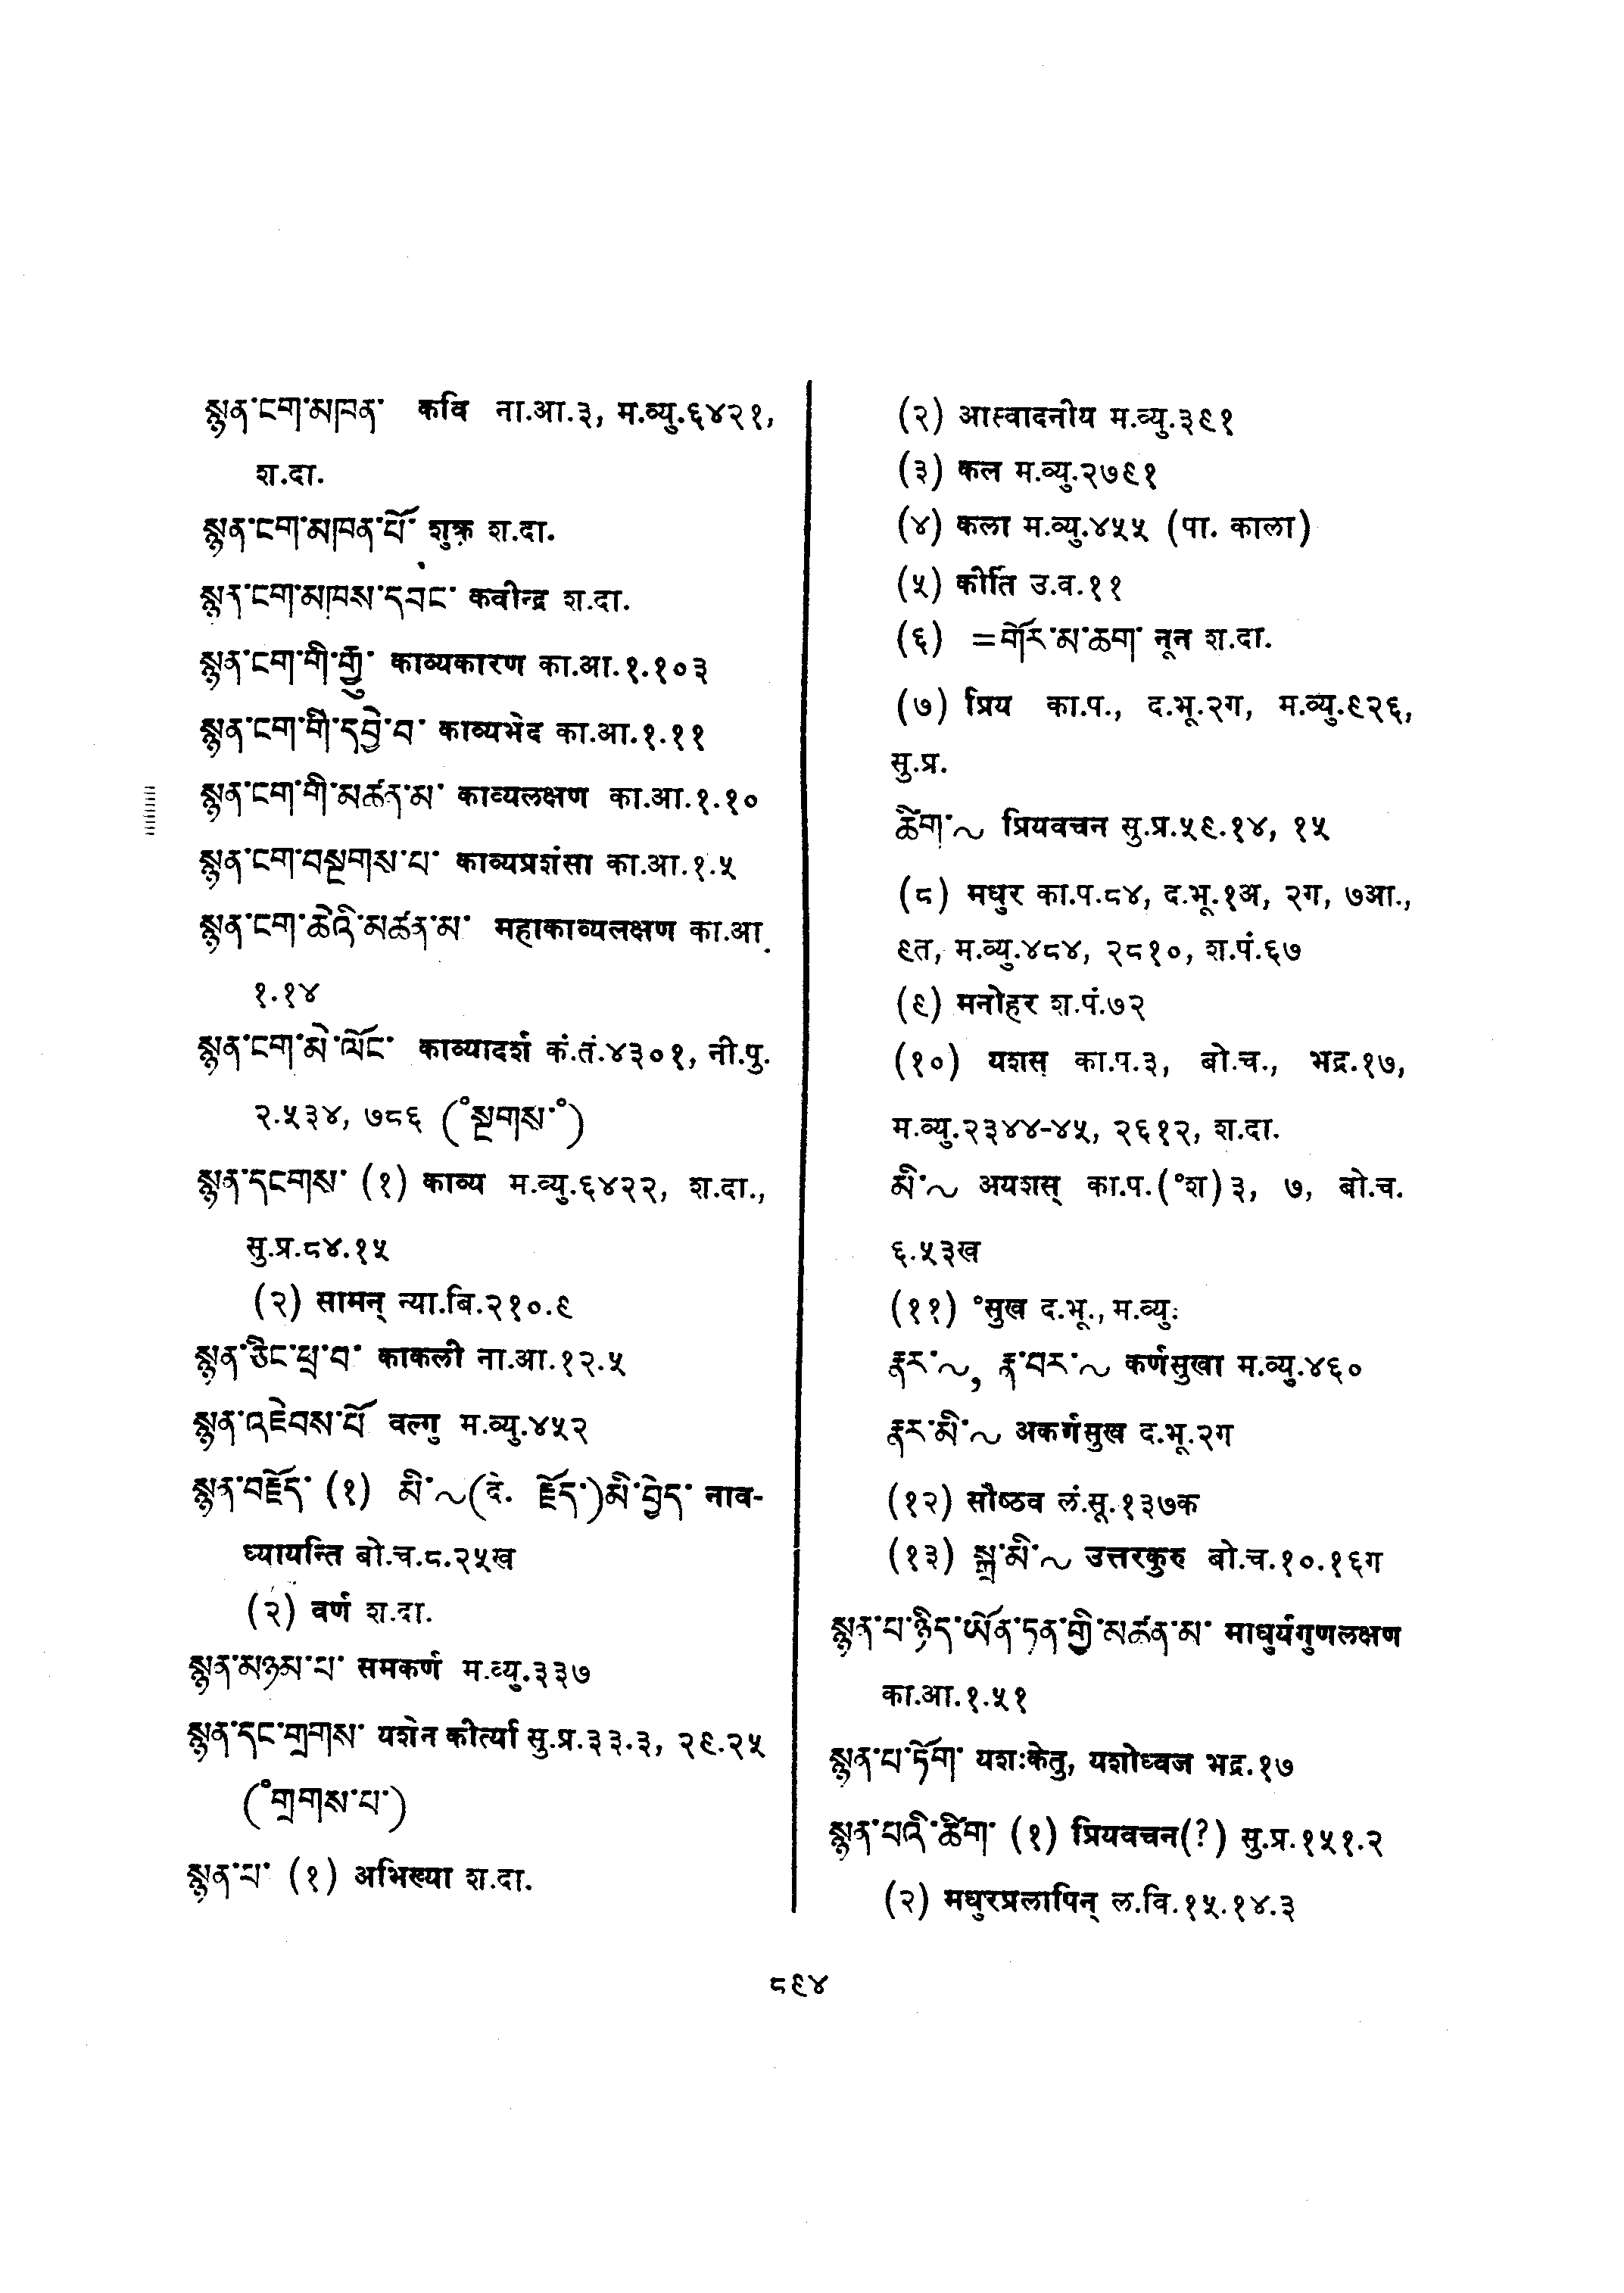 སྙན་ངག་མཁན་ कवि ना.आ.३, म.व्यु.६४२१,
श.दा.
སྙན་ངག་མཁན་པོ་ शुक्र श.दा.
སྙན་ངག་མཁས་དབང་ कवीन्द्र श.दा.
སྙན་ངག་གི་རྒྱུ་ काव्यकारण का.आ.१.१०३
སྙན་ངག་གི་དབྱེ་བ་ काव्यभेद का.आ.१.११
སྙན་ངག་གི་མཚན་མ་ काव्यलक्षण का.आ.१.१०
སྙན་ངག་བསྔགས་པ་ काव्यप्रशंसा का.आ.१.५
སྙན་ངག་ཆེའི་མཚན་མ་ महाकाव्यलक्षण का.आ.
१.१४
སྙན་ངག་མེ་ལོང་ काव्यादर्श कं.तं.४३०१, नी.पु.
२.५३४, ७८६ (°སྔགས་°)
སྙན་དངགས་ (१) काव्य म.व्यु.६४२२, श.दा.,
सु.प्र.८४.१५
(२) सामन् न्या.बि.२१०.९
སྙན་ཅིང་ཕྲ་བ་ काकली ना.आ.१२.५
སྙན་འཇེབས་པོ་ वल्गु म.व्यु.४५२
སྙན་བརྗོད་ (१) མི་~(दे. རྗོད་)མི་བྱེད་ नाव-
ध्यायन्ति बो.च.८.२५ख
(२) वर्ण श.दा.
སྙན་མཉམ་པ་ समकर्ण म.व्यु.३३७
སྙན་དང་གྲགས་ यशेन कीर्त्या सु.प्र.३३.३, २९.२५
(°གྲགས་པ་)
སྙན་པ་ (१) अभिख्या श.दा.
(२) आस्वादनीय म.व्यु.३९१
(३) कल म.व्यु.२७९१
(४) कला म.व्यु.४५५ (पा. काला)
(५) कीर्ति उ.व.११
(६) =གོར་མ་ཆག་ नून श.दा.
(७) प्रिय का.प., द.भू.२ग, म.व्यु.९२६,
सु.प्र.
ཚིག་~ प्रियवचन सु.प्र.५९.१४, १५
(८) मधुर का.प.८४, द.भू.१अ, २ग, ७आ.,
९त, म.व्यु.४८४, २८१०, श.पं.६७
(९) मनोहर श.पं.७२
(१०) यशस् का.प.३, बो.च., भद्र.१७,
म.व्यु.२३४४-४५, २६१२, श.दा.
མི་~ अयशस् का.प.(°श)३, ७, बो.च.
६.५३ख
(११) °सुख द.भू., म.व्यु.:
རྣར་~, རྣ་བར་~ कर्णसुखा म.व्यु.४६०
རྣར་མི་~ अकर्णसुख द.भू.२ग
(१२) सौष्ठव लं.सू.१३७क
(१३) སྒྲ་མི་~ उत्तरकुरु बो.च.१०.१६ग
སྙན་པ་ཉིད་ཡོན་ཏན་གྱི་མཚན་མ་ माधुर्यगुणलक्षण
का.आ.१.५१
སྙན་པ་ཏོག་ यशःकेतु, यशोध्वज भद्र.१७
སྙན་པའི་ཚིག་ (१) प्रियवचन(?) सु.प्र.१५१.२
(२) मधुरप्रलापिन् ल.वि.१५.१४.३
८९४